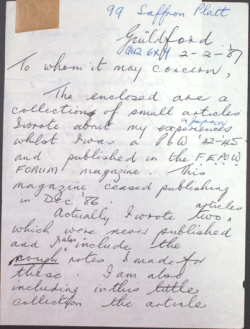 99 Saffron Platt
Guildford
GU2 6XY 2-2-87
To whom it may concern,
The enclosed are a
collection of small articles
I wrote about my experiences
whilst I was a PoW '42-45
and published in the F.E.P.O.W
FORUM magazine. This
magazine ceased publishing
in Dec 86.
Actually I wrote two articles
which were never published
and I also include the
rough notes I made for
these. I am also
including in this little
collection the article